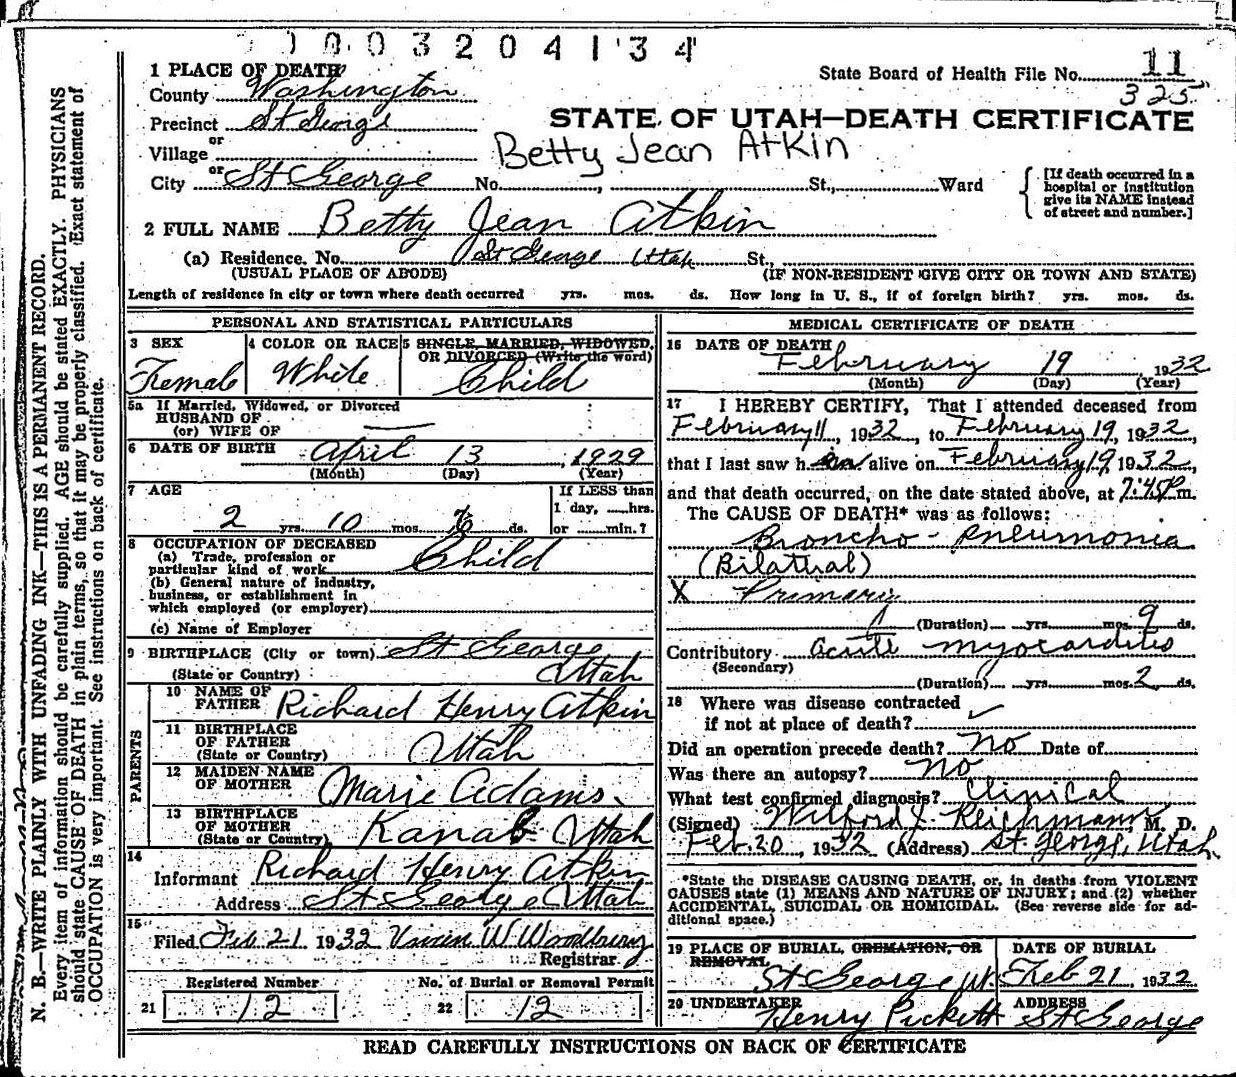 0 0 0 3 2 0 4 1 3 4
1 PLACE OF DEATH
State Board of Health File No. 11
325
County Washington
Precinct St George
STATE OF UTAH—DEATH CERTIFICATE
or
Village
Betty Jean Atkin
City or St George No. , St., Ward
[If death occurred in a hospital or institution give its NAME instead of street and number.]
2 FULL NAME Betty Jean Atkin
(a) Residence. No. St George Utah St.,
(USUAL PLACE OF ABODE) (IF NON-RESIDENT GIVE CITY OR TOWN AND STATE)
Length of residence in city or town where death occurred yrs. mos. ds. How long in U. S., if of foreign birth? yrs. mos. ds.
PERSONAL AND STATISTICAL PARTICULARS
3 SEX
Female
4 COLOR OR RACE
White
5 SINGLE, MARRIED, WIDOWED,
OR DIVORCED (Write the word)
Child
5a If Married, Widowed, or Divorced
HUSBAND OF
(or) WIFE OF —
6 DATE OF BIRTH April 13, 1929
(Month) (Day) (Year)
7 AGE
2 yrs. 10 mos. 6 ds.
If LESS than
1 day, ....hrs.
or ....min.?
8 OCCUPATION OF DECEASED
(a) Trade, profession or
particular kind of work Child
(b) General nature of industry,
business, or establishment in
which employed (or employer)
(c) Name of Employer
9 BIRTHPLACE (City or town) St George
(State or Country) Utah
PARENTS
10 NAME OF
FATHER Richard Henry Atkin
11 BIRTHPLACE
OF FATHER
(State or Country) Utah
12 MAIDEN NAME
OF MOTHER Marie Adams
13 BIRTHPLACE
OF MOTHER
(State or Country) Kanab Utah
14
Informant Richard Henry Atkin
Address St George Utah
15
Filed Feb. 21 1932 Vivian W Woodbury
Registrar
Registered Number
21 12
No. of Burial or Removal Permit
22 12
MEDICAL CERTIFICATE OF DEATH
16 DATE OF DEATH
February 19, 1932
(Month) (Day) (Year)
17 I HEREBY CERTIFY, That I attended deceased from
February 11, 1932, to February 19, 1932,
that I last saw h er alive on February 19, 1932,
and that death occurred, on the date stated above, at 7:45 p m.
The CAUSE OF DEATH* was as follows:
Broncho-Pneumonia
(Bilatural)
X Primary
(Duration) yrs. mos. 9 ds.
Contributory Acute myocarditis
(Secondary)
(Duration) yrs. mos. 2 ds.
18 Where was disease contracted
if not at place of death? ✓
Did an operation precede death? no Date of
Was there an autopsy? no
What test confirmed diagnosis? Clinical
(Signed) Wilford J. Reichmann, M. D.
Feb. 20, 1932 (Address) St. George, Utah
*State the DISEASE CAUSING DEATH, or, in deaths from VIOLENT
CAUSES state (1) MEANS AND NATURE OF INJURY; and (2) whether
ACCIDENTAL, SUICIDAL OR HOMICIDAL. (See reverse side for ad-
ditional space.)
19 PLACE OF BURIAL, CREMATION, OR
REMOVAL
St George Ut.
DATE OF BURIAL
Feb 21, 1932
20 UNDERTAKER
Henry Pickett
ADDRESS
St George
READ CAREFULLY INSTRUCTIONS ON BACK OF CERTIFICATE
N. B.—WRITE PLAINLY WITH UNFADING INK—THIS IS A PERMANENT RECORD.
Every item of information should be carefully supplied. AGE should be stated EXACTLY. PHYSICIANS
should state CAUSE OF DEATH in plain terms, so that it may be properly classified. Exact statement of
OCCUPATION is very important. See instructions on back of certificate.